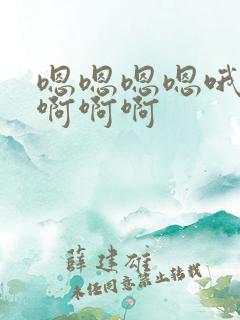 嗯嗯嗯嗯哦
啊啊啊
薛建雄
未经同意禁止转载